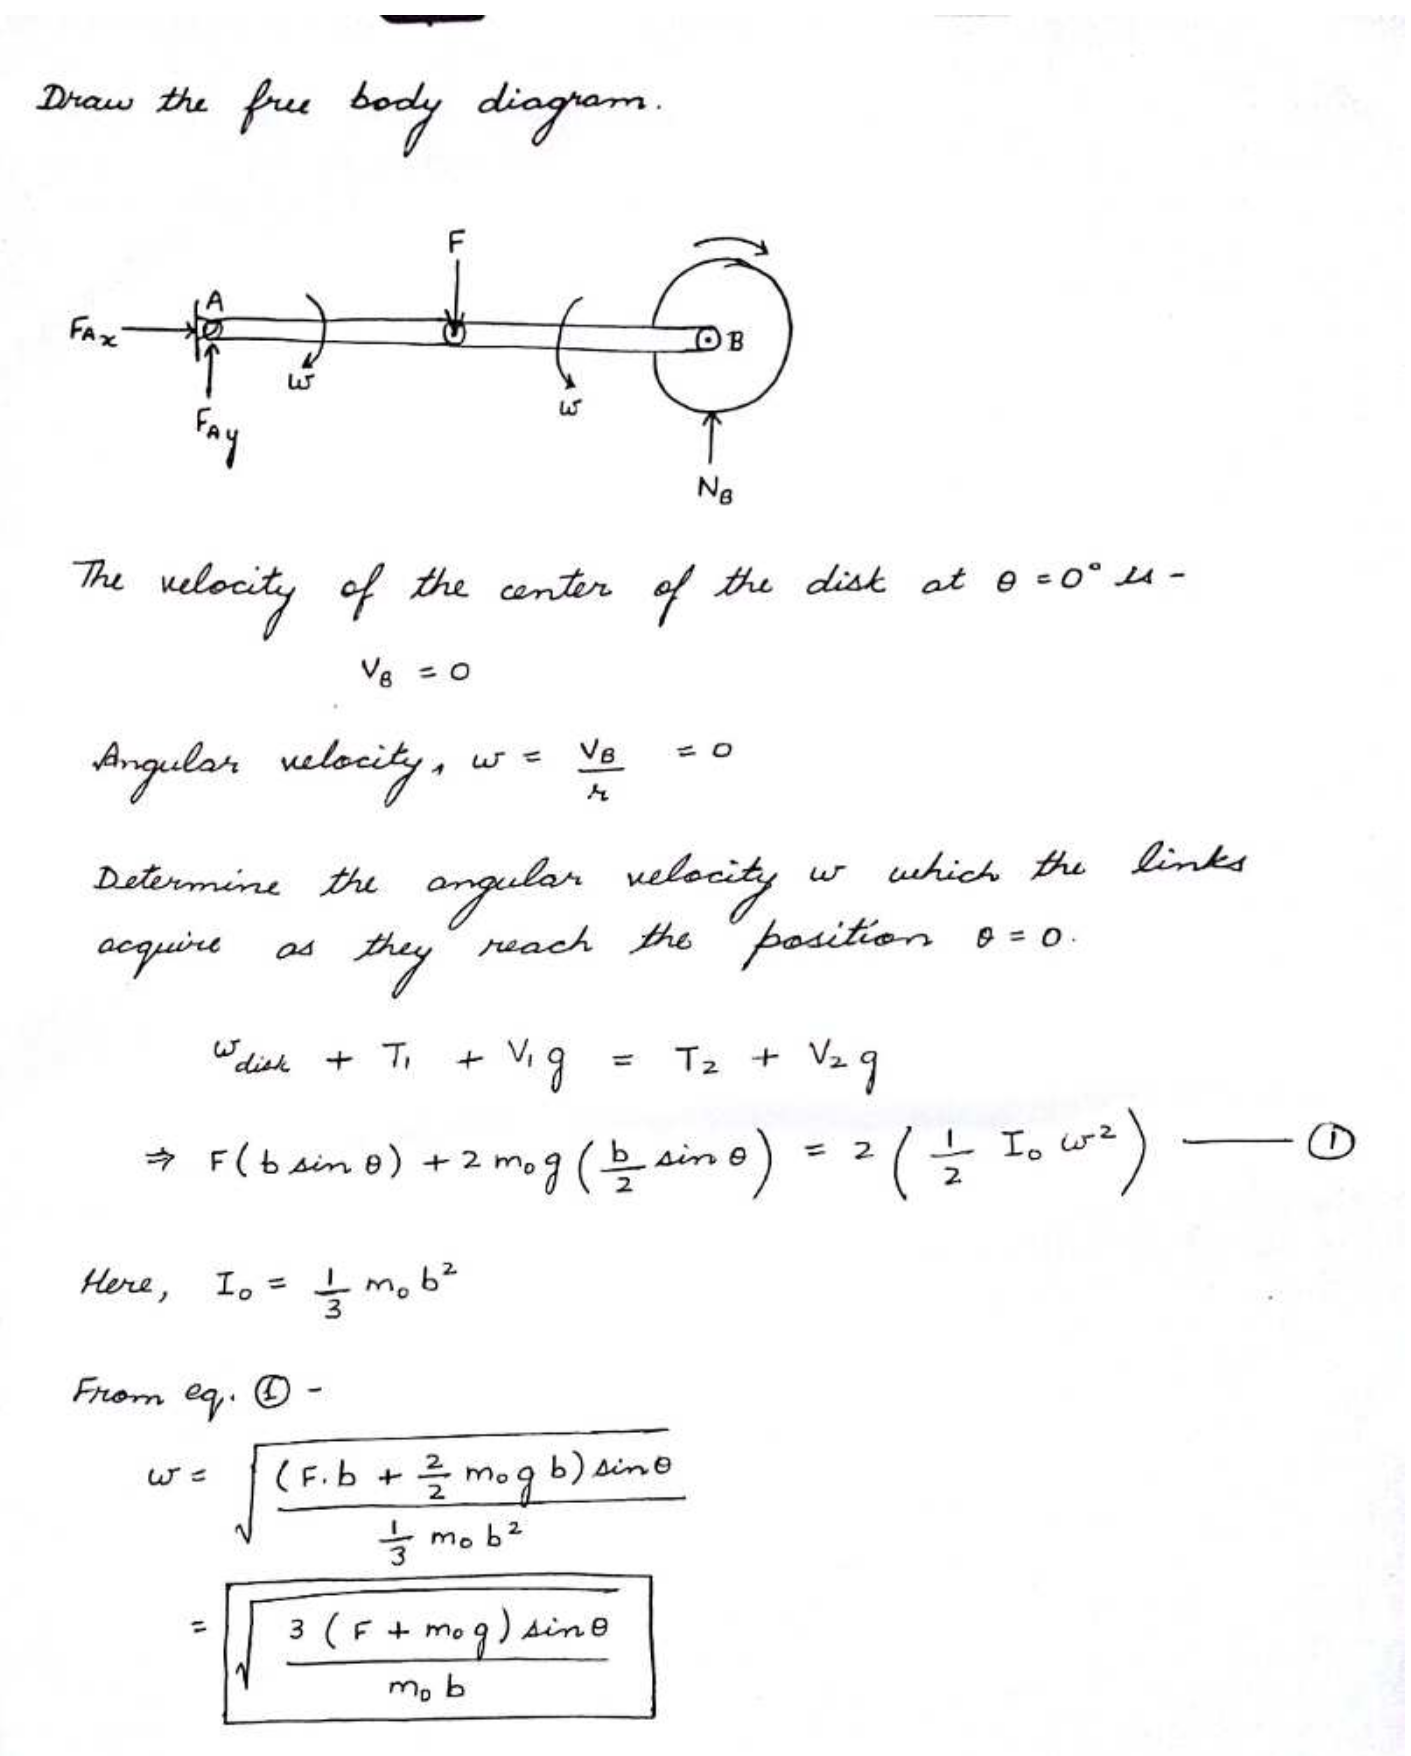 Draw the free body diagram.
F
A
F_Ax
B
ω
ω
F_Ay
N_B
The velocity of the center of the disk at θ = 0° is -
V_B = 0
Angular velocity, ω = V_B / r = 0
Determine the angular velocity ω which the links
acquire as they reach the position θ = 0.
ω_disk + T₁ + V₁g = T₂ + V₂g
⇒ F(b sin θ) + 2 m₀g (b/2 sin θ) = 2 (1/2 I₀ ω²) — ①
Here, I₀ = 1/3 m₀ b²
From eq. ① -
ω = √((F.b + 2/2 m₀ g b) sin θ / (1/3 m₀ b²))
= √(3 (F + m₀g) sin θ / (m₀ b))